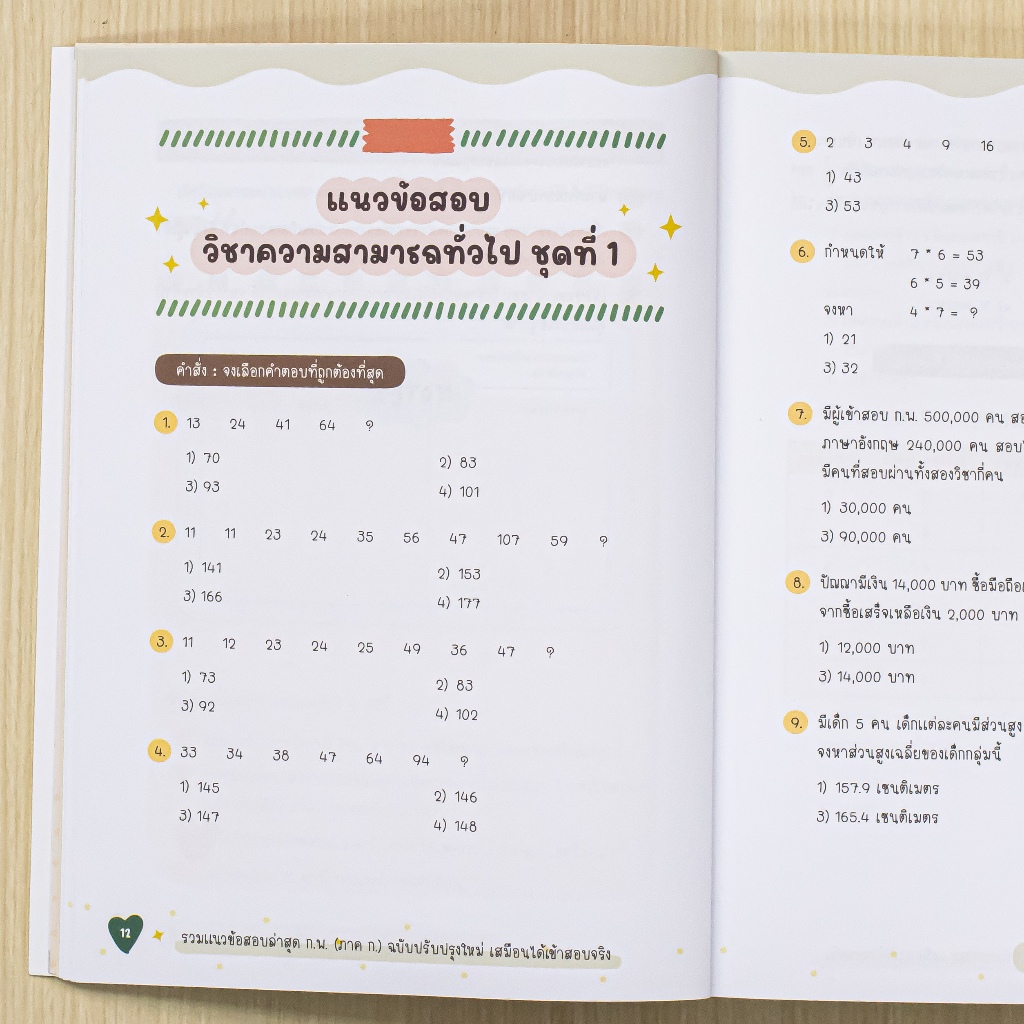 แนวข้อสอบ
วิชาความสามารถทั่วไป ชุดที่ 1
คำสั่ง : จงเลือกคำตอบที่ถูกต้องที่สุด
1. 13 24 41 64 ?
1) 70 2) 83
3) 93 4) 101
2. 11 11 23 24 35 56 47 107 59 ?
1) 141 2) 153
3) 166 4) 177
3. 11 12 23 24 25 49 36 47 ?
1) 73 2) 83
3) 92 4) 102
4. 33 34 38 47 64 94 ?
1) 145 2) 146
3) 147 4) 148
12 รวมแนวข้อสอบล่าสุด ก.พ. (ภาค ก.) ฉบับปรับปรุงใหม่ เสมือนได้เข้าสอบจริง
5. 2 3 4 9 16
1) 43
3) 53
6. กำหนดให้ 7 * 6 = 53
6 * 5 = 39
จงหา 4 * 7 = ?
1) 21
3) 32
7. มีผู้เข้าสอบ ก.พ. 500,000 คน
ภาษาอังกฤษ 240,000 คน
มีคนที่สอบผ่านทั้งสองวิชากี่คน
1) 30,000 คน
3) 90,000 คน
8. ปัณณามีเงิน 14,000 บาท ซื้อมือถือ
จากซื้อเสร็จเหลือเงิน 2,000 บาท
1) 12,000 บาท
3) 14,000 บาท
9. มีเด็ก 5 คน เด็กแต่ละคนมีส่วนสูง
จงหาส่วนสูงเฉลี่ยของเด็กกลุ่มนี้
1) 157.9 เซนติเมตร
3) 165.4 เซนติเมตร